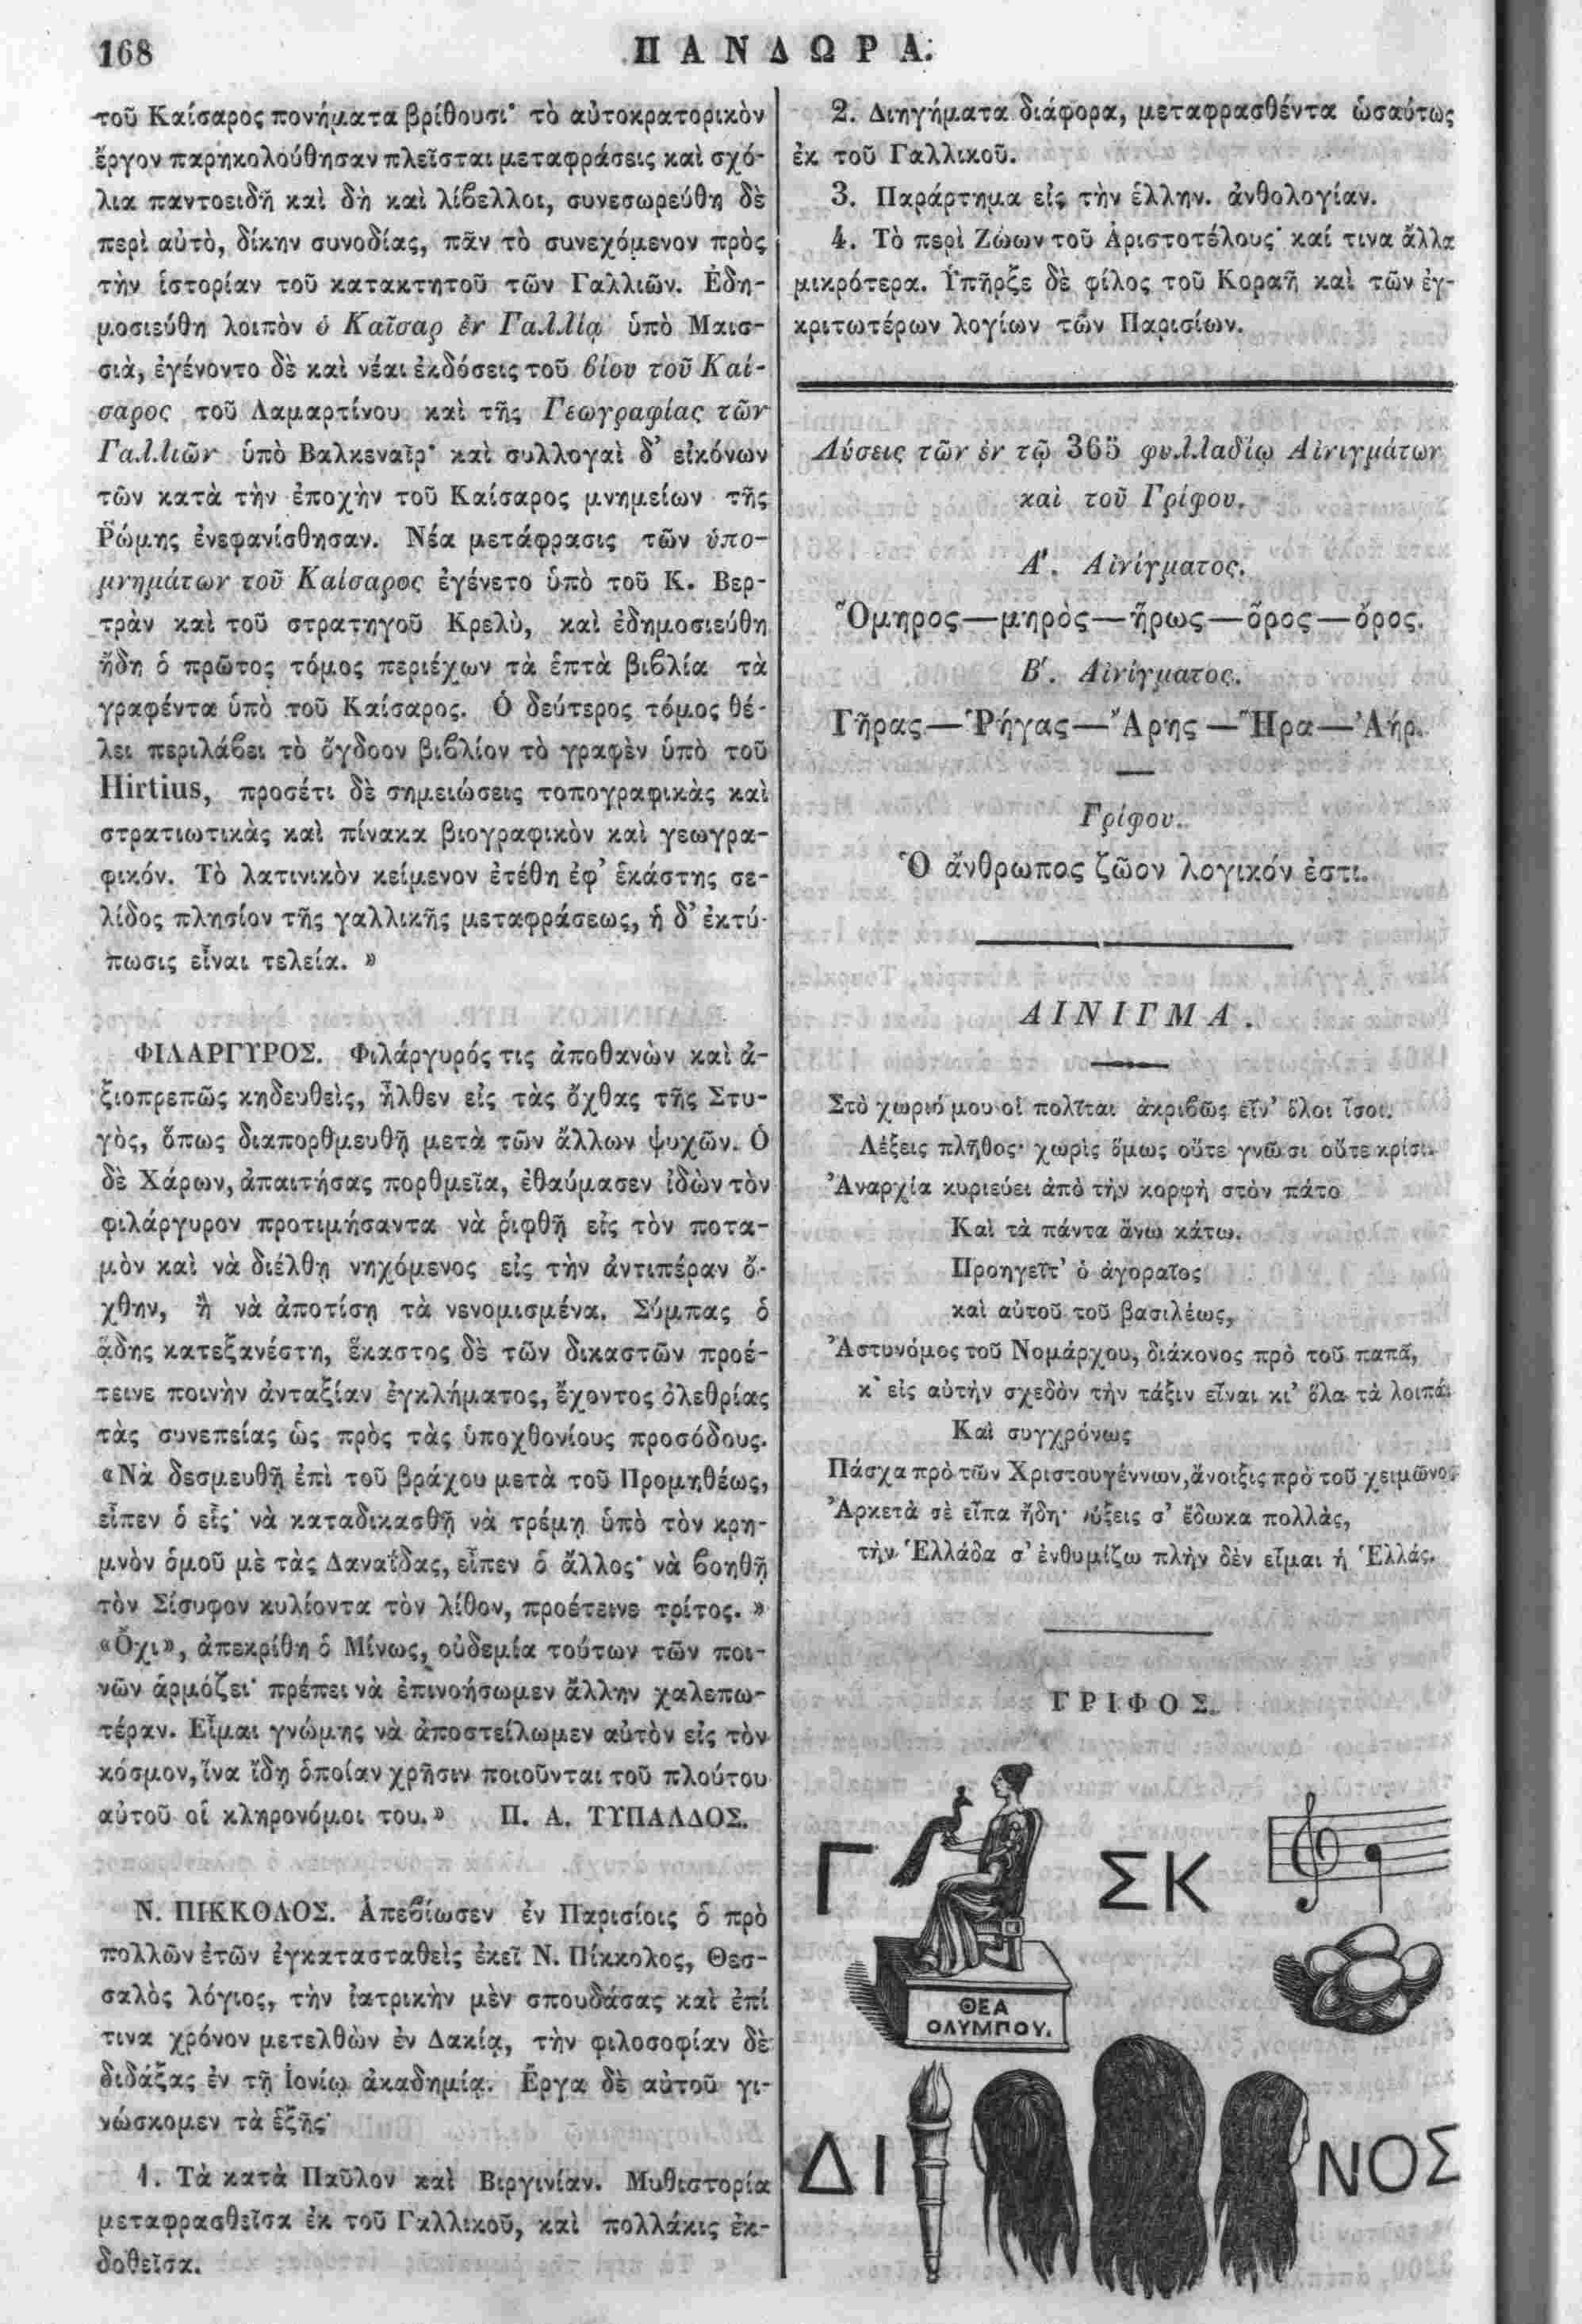 168
ΠΑΝΔΩΡΑ.
τοῦ Καίσαρος πονήματα βρίθουσι· τὸ αὐτοκρατορικὸν
ἔργον παρηκολούθησαν πλεῖσται μεταφράσεις καὶ σχό-
λια παντοειδῆ καὶ δὴ καὶ λίβελλοι, συνεσωρεύθη δὲ
περὶ αὐτὸ, δίκην συνοδίας, πᾶν τὸ συνεχόμενον πρὸς
τὴν ἱστορίαν τοῦ κατακτητοῦ τῶν Γαλλιῶν. Ἐδη-
μοσιεύθη λοιπὸν ὁ Καῖσαρ ἐν Γαλλίᾳ ὑπὸ Μαισ-
σιὰ, ἐγένοντο δὲ καὶ νέαι ἐκδόσεις τοῦ βίου τοῦ Καί-
σαρος τοῦ Λαμαρτίνου καὶ τῆς Γεωγραφίας τῶν
Γαλλιῶν ὑπὸ Βαλκεναῖρ· καὶ συλλογαὶ δ’ εἰκόνων
τῶν κατὰ τὴν ἐποχὴν τοῦ Καίσαρος μνημείων τῆς
Ῥώμης ἐνεφανίσθησαν. Νέα μετάφρασις τῶν ὑπο-
μνημάτων τοῦ Καίσαρος ἐγένετο ὑπὸ τοῦ Κ. Βερ-
τρὰν καὶ τοῦ στρατηγοῦ Κρελὺ, καὶ ἐδημοσιεύθη
ἤδη ὁ πρῶτος τόμος περιέχων τὰ ἑπτὰ βιβλία τὰ
γραφέντα ὑπὸ τοῦ Καίσαρος. Ὁ δεύτερος τόμος θέ-
λει περιλάβει τὸ ὄγδοον βιβλίον τὸ γραφὲν ὑπὸ τοῦ
Hirtius, προσέτι δὲ σημειώσεις τοπογραφικὰς καὶ
στρατιωτικὰς καὶ πίνακα βιογραφικὸν καὶ γεωγρα-
φικόν. Τὸ λατινικὸν κείμενον ἐτέθη ἐφ’ ἑκάστης σε-
λίδος πλησίον τῆς γαλλικῆς μεταφράσεως, ἡ δ’ ἐκτύ-
πωσις εἶναι τελεία. »
ΦΙΛΑΡΓΥΡΟΣ. Φιλάργυρός τις ἀποθανὼν καὶ ἀ-
ξιοπρεπῶς κηδευθεὶς, ἦλθεν εἰς τὰς ὄχθας τῆς Στυ-
γὸς, ὅπως διαπορθμευθῇ μετὰ τῶν ἄλλων ψυχῶν. Ὁ
δὲ Χάρων, ἀπαιτήσας πορθμεῖα, ἐθαύμασεν ἰδὼν τὸν
φιλάργυρον προτιμήσαντα νὰ ῥιφθῇ εἰς τὸν ποτα-
μὸν καὶ νὰ διέλθῃ νηχόμενος εἰς τὴν ἀντιπέραν ὄ-
χθην, ἢ νὰ ἀποτίσῃ τὰ νενομισμένα. Σύμπας ὁ
ᾅδης κατεξανέστη, ἕκαστος δὲ τῶν δικαστῶν προέ-
τεινε ποινὴν ἀνταξίαν ἐγκλήματος, ἔχοντος ὀλεθρίας
τὰς συνεπείας ὡς πρὸς τὰς ὑποχθονίους προσόδους.
«Νὰ δεσμευθῇ ἐπὶ τοῦ βράχου μετὰ τοῦ Προμηθέως,
εἶπεν ὁ εἷς· νὰ καταδικασθῇ νὰ τρέμῃ ὑπὸ τὸν κρη-
μνὸν ὁμοῦ μὲ τὰς Δαναΐδας, εἶπεν ὁ ἄλλος· νὰ βοηθῇ
τὸν Σίσυφον κυλίοντα τὸν λίθον, προέτεινε τρίτος. »
«Ὄχι», ἀπεκρίθη ὁ Μίνως, οὐδεμία τούτων τῶν ποι-
νῶν ἁρμόζει· πρέπει νὰ ἐπινοήσωμεν ἄλλην χαλεπω-
τέραν. Εἶμαι γνώμης νὰ ἀποστείλωμεν αὐτὸν εἰς τὸν
κόσμον, ἵνα ἴδῃ ὁποίαν χρῆσιν ποιοῦνται τοῦ πλούτου
αὐτοῦ οἱ κληρονόμοι του.» Π. Α. ΤΥΠΑΛΔΟΣ.
Ν. ΠΙΚΚΟΛΟΣ. Ἀπεβίωσεν ἐν Παρισίοις ὁ πρὸ
πολλῶν ἐτῶν ἐγκατασταθεὶς ἐκεῖ Ν. Πίκκολος, Θεσ-
σαλὸς λόγιος, τὴν ἰατρικὴν μὲν σπουδάσας καὶ ἐπί
τινα χρόνον μετελθὼν ἐν Δακίᾳ, τὴν φιλοσοφίαν δὲ
διδάξας ἐν τῇ Ἰονίῳ ἀκαδημίᾳ. Ἔργα δὲ αὐτοῦ γι-
νώσκομεν τὰ ἑξῆς·
1. Τὰ κατὰ Παῦλον καὶ Βιργινίαν. Μυθιστορία
μεταφρασθεῖσα ἐκ τοῦ Γαλλικοῦ, καὶ πολλάκις ἐκ-
δοθεῖσα.
2. Διηγήματα διάφορα, μεταφρασθέντα ὡσαύτως
ἐκ τοῦ Γαλλικοῦ.
3. Παράρτημα εἰς τὴν ἑλλην. ἀνθολογίαν.
4. Τὸ περὶ Ζώων τοῦ Ἀριστοτέλους· καί τινα ἄλλα
μικρότερα. Ὑπῆρξε δὲ φίλος τοῦ Κοραῆ καὶ τῶν ἐγ-
κριτωτέρων λογίων τῶν Παρισίων.
Λύσεις τῶν ἐν τῷ 365 φυλλαδίῳ Αἰνιγμάτων
καὶ τοῦ Γρίφου.
Α'. Αἰνίγματος.
Ὅμηρος—μηρὸς—ἥρως—ὄρος—ὅρος.
Β'. Αἰνίγματος.
Γῆρας—Ῥήγας—Ἄρης—Ἥρα—Ἀήρ.
Γρίφου.
Ὁ ἄνθρωπος ζῶον λογικόν ἐστι.
ΑΙΝΙΓΜΑ.
Στὸ χωριό μου οἱ πολῖται ἀκριβῶς εἶν’ ὅλοι ἴσοι.
Λέξεις πλῆθος· χωρὶς ὅμως οὔτε γνῶσι οὔτε κρίσι.
Ἀναρχία κυριεύει ἀπὸ τὴν κορφὴ στὸν πάτο
Καὶ τὰ πάντα ἄνω κάτω.
Προηγεῖτ’ ὁ ἀγοραῖος
καὶ αὐτοῦ τοῦ βασιλέως,
Ἀστυνόμος τοῦ Νομάρχου, διάκονος πρὸ τοῦ παπᾶ,
κ’ εἰς αὐτὴν σχεδὸν τὴν τάξιν εἶναι κι’ ὅλα τὰ λοιπά·
Καὶ συγχρόνως
Πάσχα πρὸ τῶν Χριστουγέννων, ἄνοιξις πρὸ τοῦ χειμῶνος
Ἀρκετὰ σὲ εἶπα ἤδη· λύξεις σ’ ἔδωκα πολλὰς,
τὴν Ἑλλάδα σ’ ἐνθυμίζω πλὴν δὲν εἶμαι ἡ Ἑλλάς.
ΓΡΙΦΟΣ.
Γ ΣΚ
ΘΕΑ
ΟΛΥΜΠΟΥ.
ΔΙ ΝΟΣ